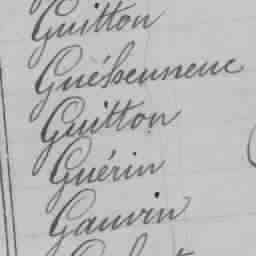 Guitton
Guéhenneuc
Guitton
Guérin
Gauvin